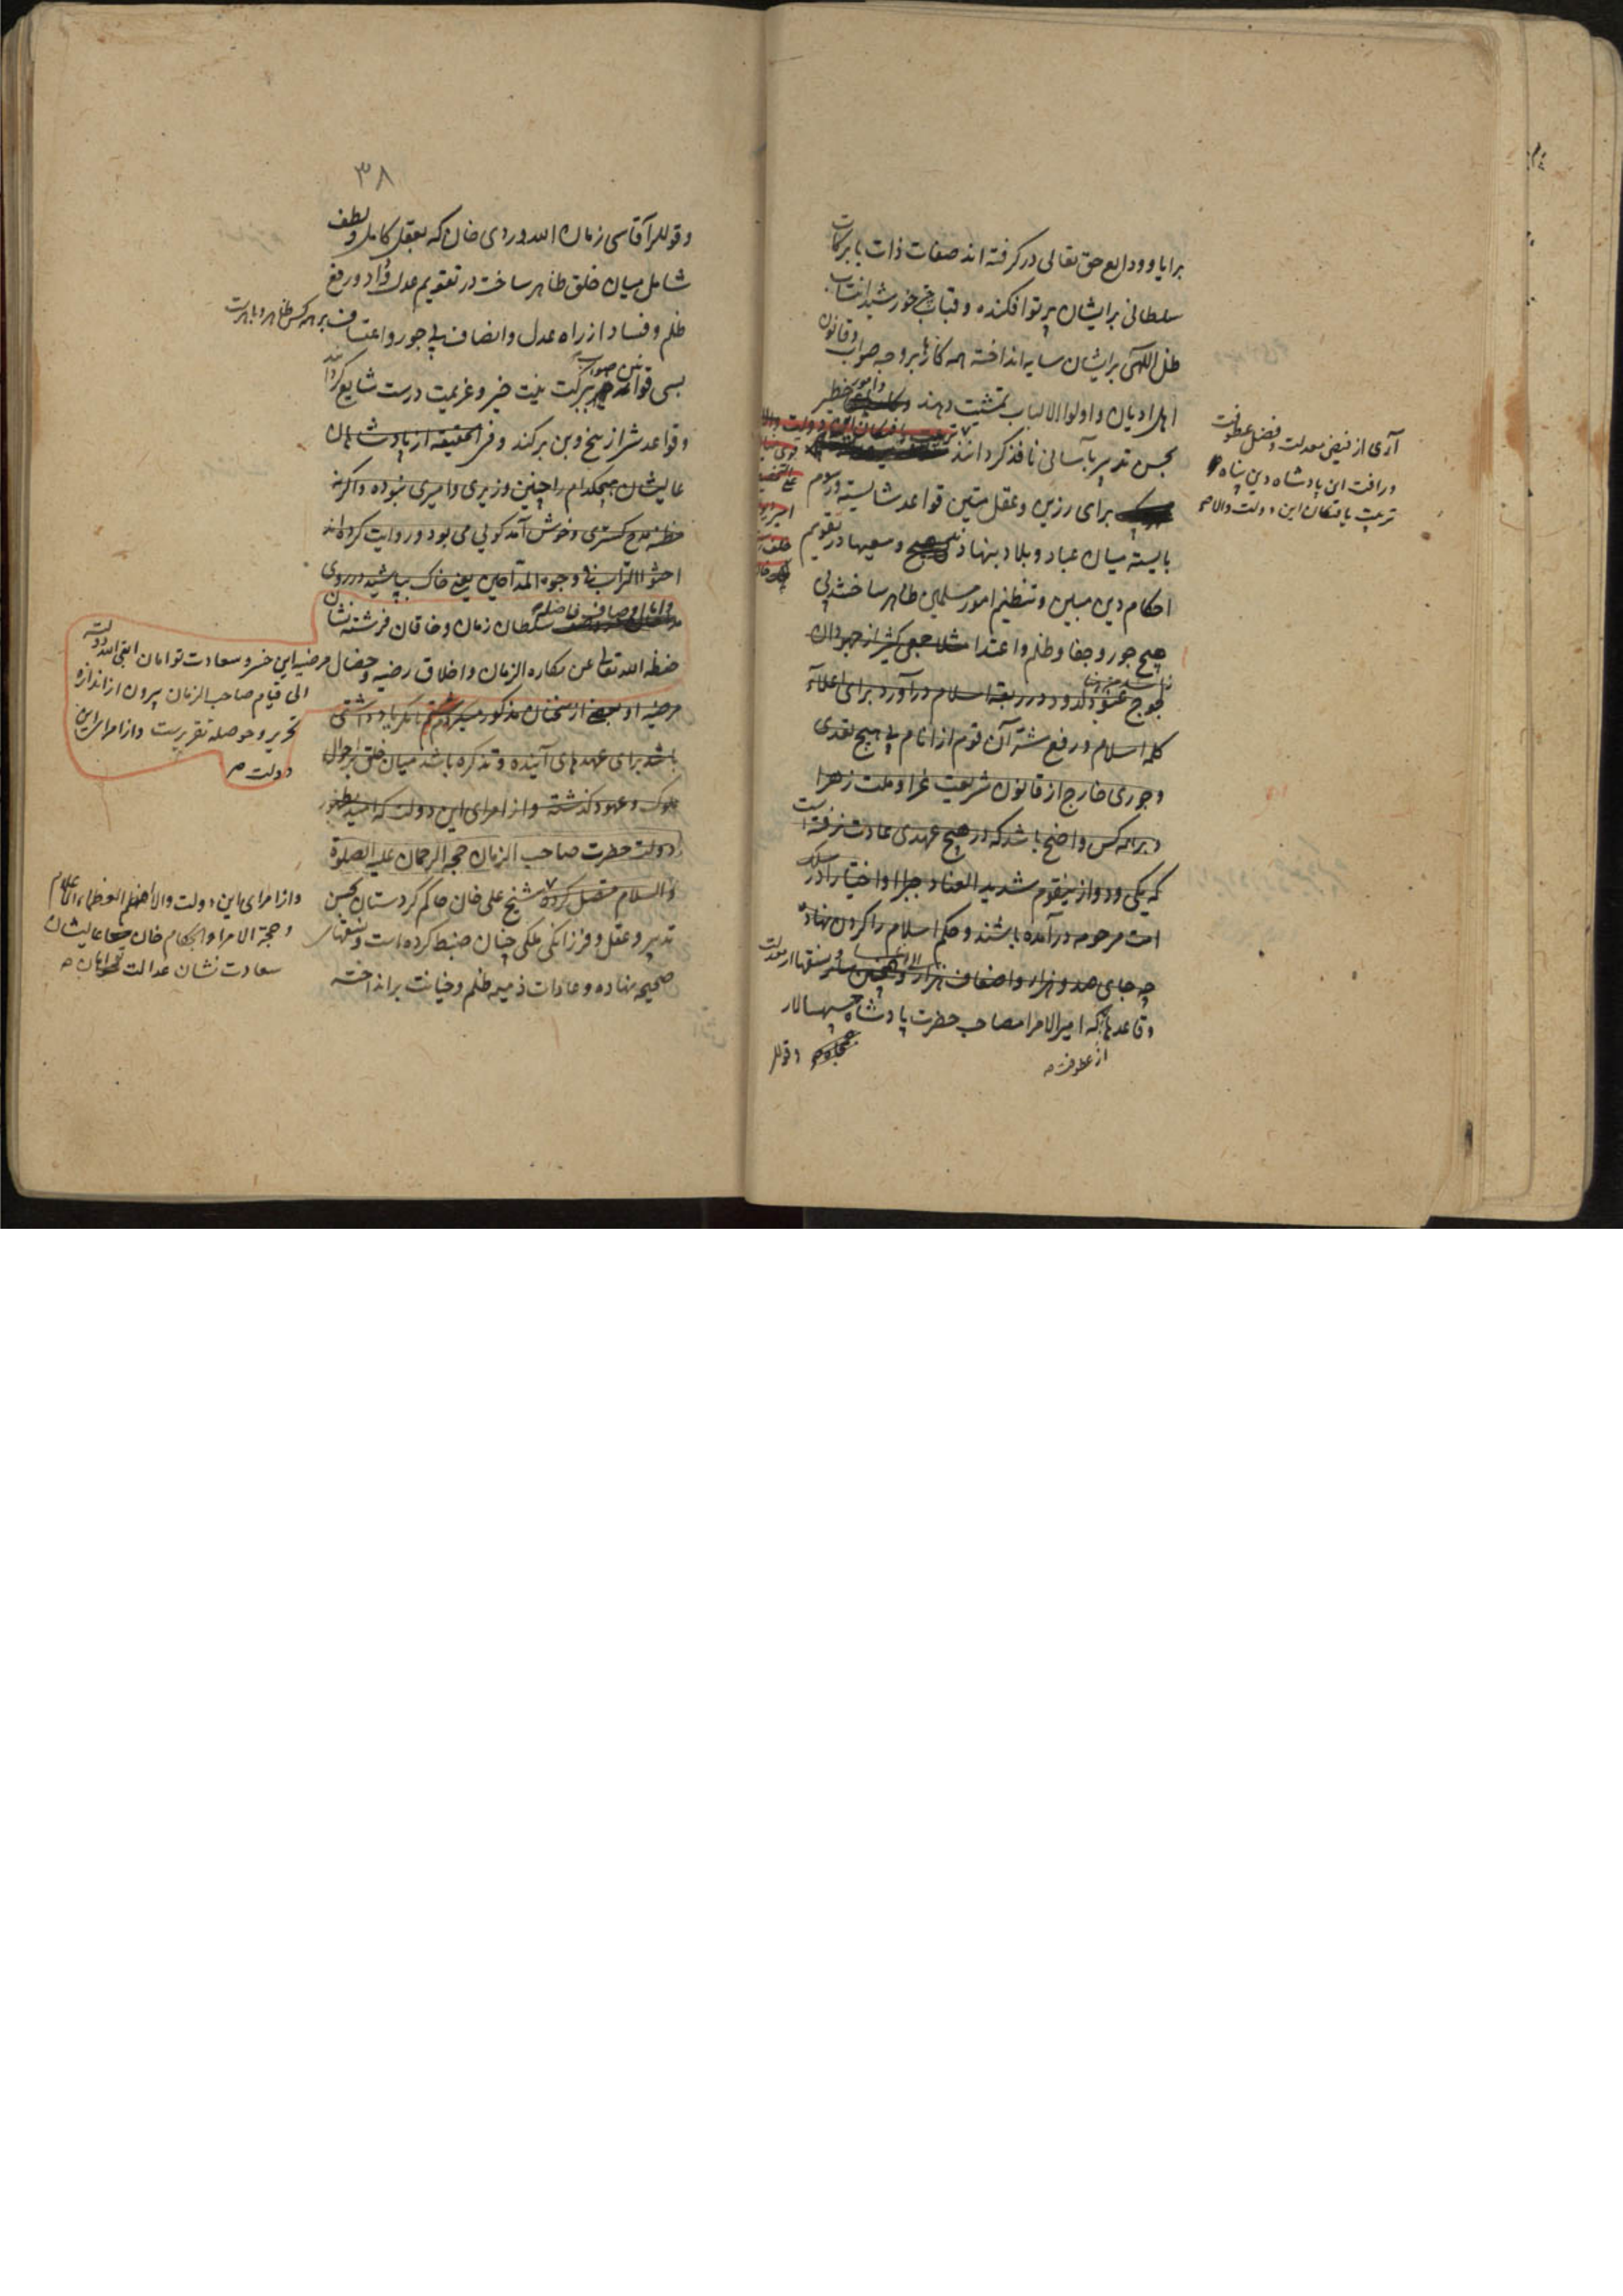 برایا و ودایع حق تعالی در گرفته اند صفات ذات بابرکات
سلطانی برایشان پرتو افکنده و قباب چتر خورشید انتساب
ظل اللهی برایشان سایه انداخته همه کارها بر وجه صواب و قانون
اهل ادیان و اولوا الالباب تمشیت دهند و امور خطیر
بحسن تدبیر بآسانی نافذ کردانند
برای رزین و عقل متین قواعد شایسته و رسوم
بایسته میان عباد و بلاد بنهادند و سعیها در تقویم
احکام دین مبین و تنظیم امور مسلمین ظاهر ساختند بی
هیچ جور و جفا و ظلم و اعتدا مثلا جمعی کثیر از جهودان
لجوج عنود در ربقه اسلام درآورد برای اعلاء
کلمه اسلام و رفع شر آن قوم از انام بی هیچ تعدی
و جوری خارج از قانون شریعت غرا و ملت زهرا
و بر همه کس واضح باشد که در هیچ عهدی عادت نرفته است
که یکی و دو از ینقوم شدید العناد جبرا و اختیارا در سلک
امت مرحومه درآمده باشند و حکم اسلام را کردن نهاده
چه جای صد و هزار و اضعاف هزار
و قاعدها که امیر الامرا مصاحب حضرت پادشاه سپهسالار
از عطوفت
و قوللر
آری از فیض معدلت و فضل عطوفت
و رافت این پادشاه دین پناه
تربیت یافتکان این دولت والا
۳۸
و قوللر آقاسی زمان الله وردی خان که بعقل کامل و لطف
شامل میان خلق ظاهر ساخت در تقویم عدل و داد و رفع
ظلم و فساد از راه عدل و انصاف بی جور و اعتساف بر همه کس ظاهر و باهرست
بسی قوانین صواب ببرکت نیت خیر و عزیمت درست شایع کرداند
و قواعد شر از بیخ و بن برکند و فی الحقیقه از پادشاهان
عالیشان هیچکدام را چنین وزیری و امیری نبوده و اکرنه
مظنه مدح کستری و خوش آمد کوئی می بود و روایت کرده اند
احثوا التراب فی وجوه المداحین یعنی خاک بپاشید در روی
سلطان زمان و خاقان فرشته نشان
حفظه الله تعالی عن مکاره الزمان و اخلاق رضیه و خصال مرضیه این خسرو سعادت توامان ابقی الله دولته
الی قیام صاحب الزمان بیرون از اندازه
تحریر و حوصله تقریرست و از امرای این
دولت
مرضیه او بعضی از سخنان مذکور میکردم تا مکر یادداشتی
باشد برای عهدهای آینده و تذکره باشد میان خلق باحوال
ملوک و عهود کذشته و از امرای این دولت که امید بظهور
دولت حضرت صاحب الزمان حجه الرحمان علیه الصلوة
و السلام متصل کردد شیخ علی خان حاکم کردستان بحسن
تدبیر و عقل و فرزانکی ملکی چنان ضبط کرده است و سنتهای
صحیحه نهاده و عادات ذمیمه ظلم و خیانت برانداخته
و از امرای این دولت والا
و حجة الامرا و الحکام خان عالیشان
سعادت نشان عدالت توامان